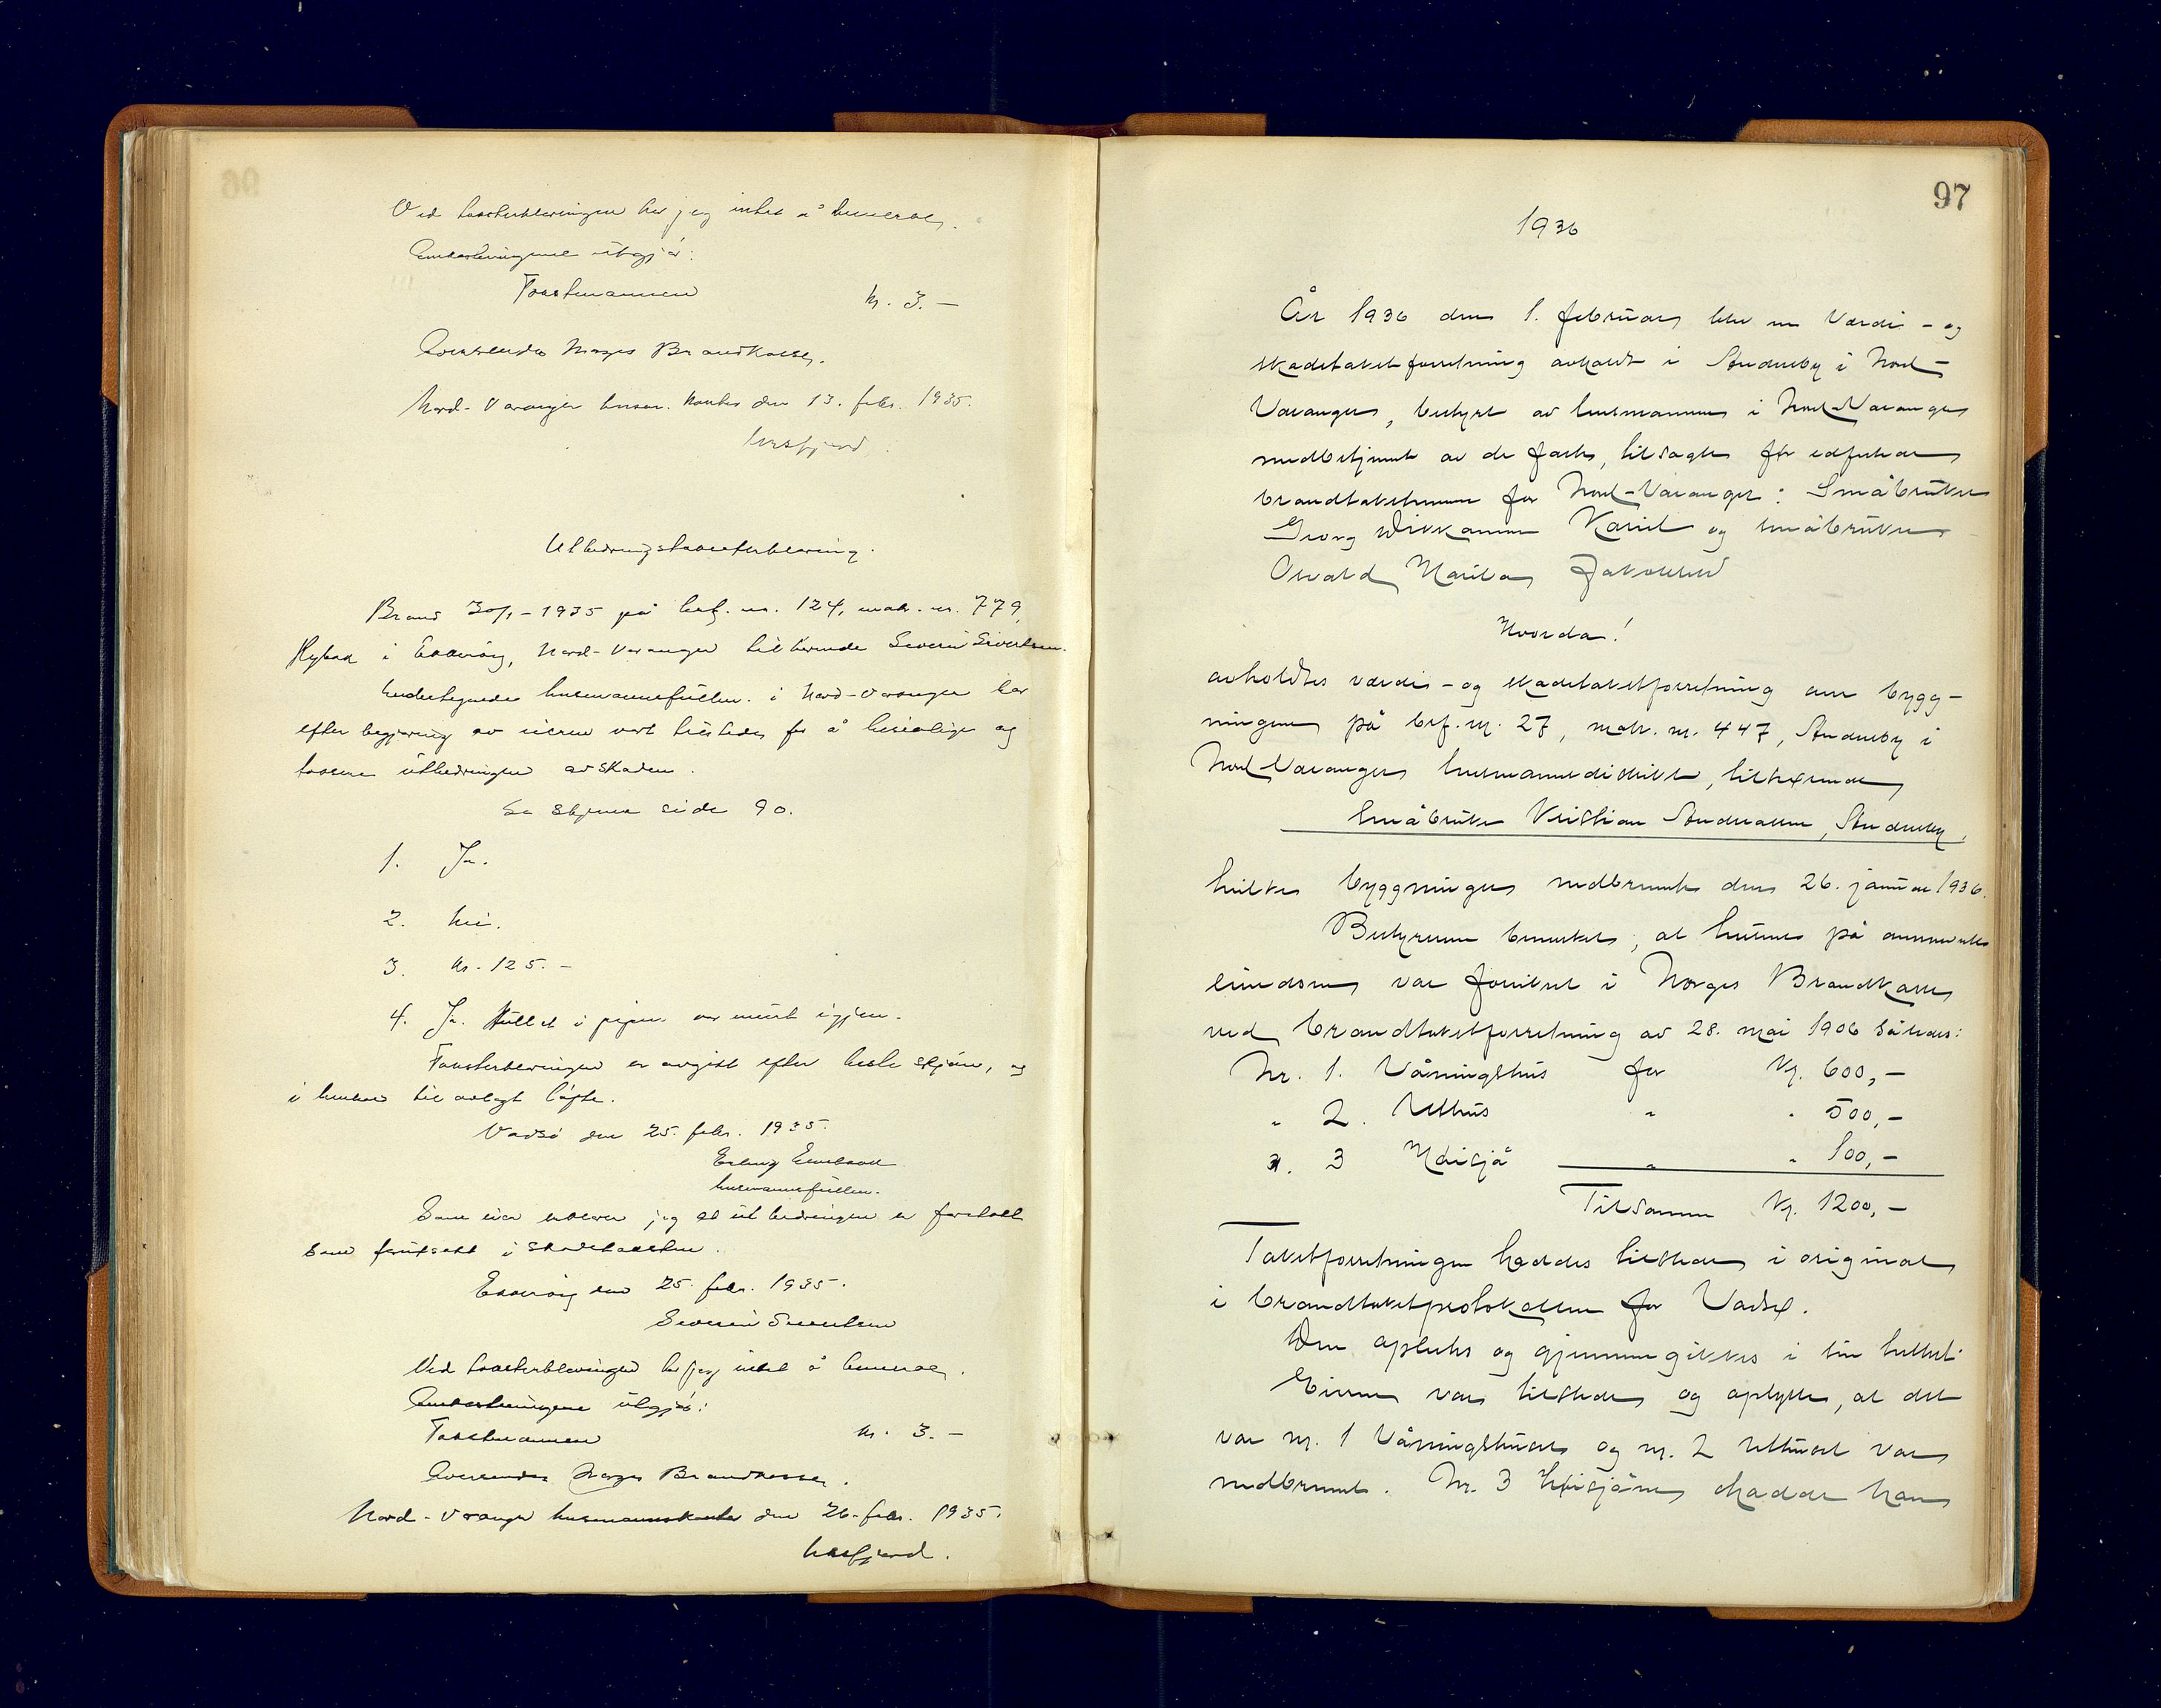 Ved takserklæringen har jeg intet å bemerke.
Omkostningene utgjør:
Takstmannen kr. 3.–
Oversendes Norges Brandkasse.
Nord-Varanger lensm. kontor den 13. febr. 1935.
Utbedringstakserklæring.
Brand 30/1-1935 på brf. nr. 124, matr. nr. 779,
i Ekkerøy, Nord-Varanger tilhørende Severin Sivertsen.
Undertegnede lensmannsfullm. i Nord-Varanger har
efter begjæring av eieren vært tilstede for å besiktige og
taksere utbedringen av skaden.
Se skjema side 90.
1. Ja.
2. Nei.
3. Kr. 125.–
4. Ja. Hullet i pipen var murt igjen.
Takserklæringen er avgitt efter beste skjønn, og
i henhold til avlagt løfte.
Vadsø den 25. febr. 1935.
Erling
lensmannsfullm.
Som eier erklærer jeg at utbedringen er foretatt
som forutsatt i skadetaksten.
Ekkerøy den 25. febr. 1935.
Severin Sivertsen
Ved takserklæringen har jeg intet å bemerke.
Omkostningene utgjør:
Takstmannen kr. 3.–
Oversendes Norges Brandkasse.
Nord-Varanger lensmannskontor den 26. febr. 1935.
97
1936
År 1936 den 1. februar blev en værdi- og
skadetakstforretning avholdt i Andersby i Nord-
Varanger, bestyrt av lensmannen i Nord-Varanger
medbetjent av de faste, tilsagte før edfestede
brandtakstmenn for Nord-Varanger: Småbruker
Georg Kariel og småbruker
Osvald Marilo Jakobsen
Hvorda!
avholdtes værdi- og skadetakstforretning over bygg-
ningene på brf. nr. 27, matr. nr. 447, Andersby i
Nord-Varanger lensmannsdistrikt, tilhørende
Småbruker Kristian Andreassen, Andersby,
hvilke byggninger nedbrente den 26. januar 1936.
Bestyreren bemerket, at husene på ommeldte
eiendom var forsikret i Norges Brandkasse
ved brandtakstforretning av 28. mai 1906 således:
Nr. 1. Våningshus for Kr. 600,–
" 2. Uthus " " 500,–
". 3 Høisjå " " 100,–
Tilsammen Kr. 1200,–
Takstforretningen haddes tilstede i original
i brandtakstprotokollen for Vadsø.
Den oplestes og gjennemgikkes i sin helhet.
Eieren var tilstede og oplyste, at det
var nr. 1 Våningshuset og nr. 2 Uthuset var
nedbrent. Nr. 3 Høisjåen hadde han